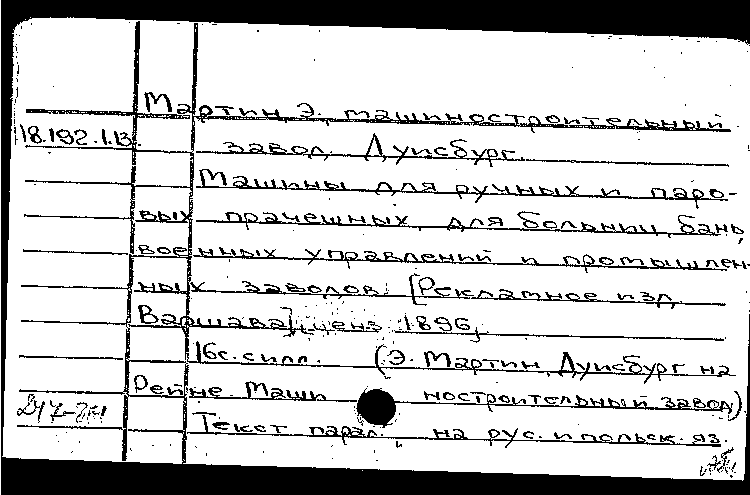 Мартин, Э., машиностроительный
18.192.1.13. завод, Дуисбург.
Машины для ручных и паро-
вых прачешных, для больниц, бань,
военных управлений и промышлен-
ных заводов. [Рекламное изд.
Варшава], ценз. 1896,
16с. с илл. (Э. Мартин, Дуисбург на
Рейне. Маши ностроительный завод).
Текст парал. на рус. и польск. яз.